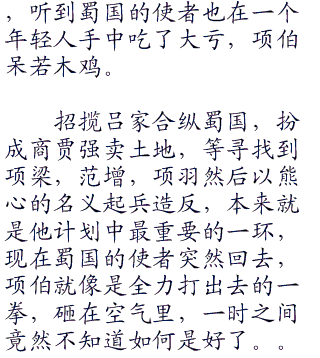 ，听到蜀国的使者也在一个
年轻人手中吃了大亏，项伯
呆若木鸡。
招揽吕家合纵蜀国，扮
成商贾强卖土地，等寻找到
项梁，范增，项羽然后以熊
心的名义起兵造反，本来就
是他计划中最重要的一环，
现在蜀国的使者突然回去，
项伯就像是全力打出去的一
拳，砸在空气里，一时之间
竟然不知道如何是好了。。